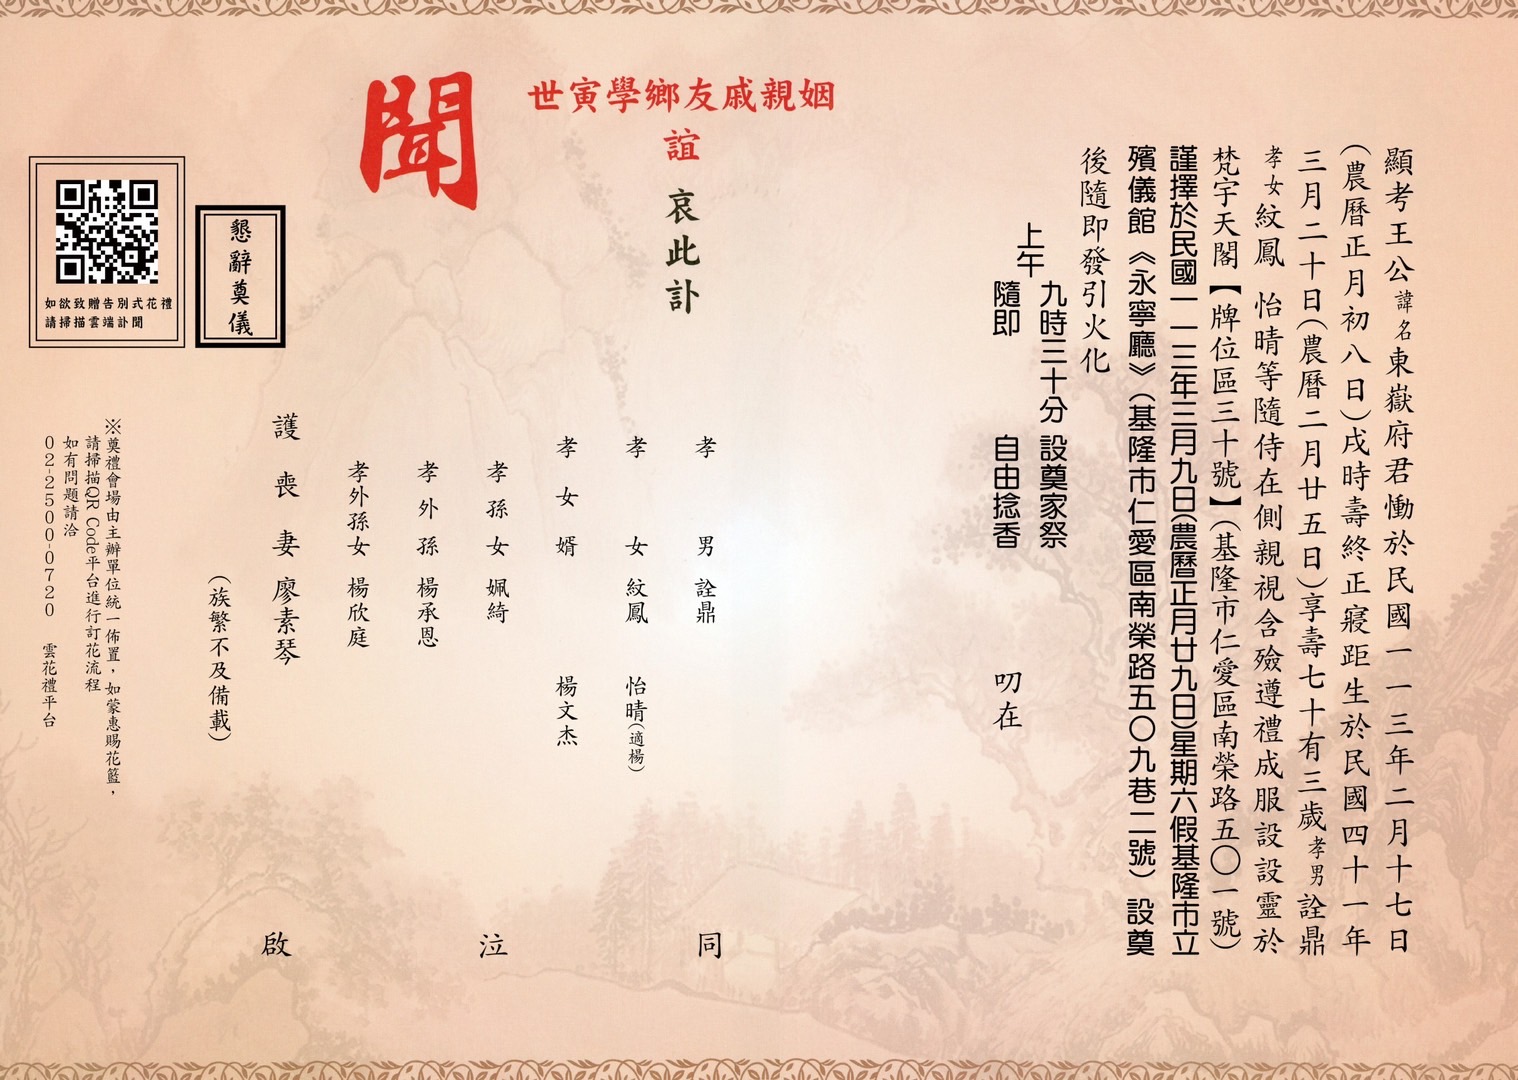 顯考王公諱名東嶽府君慟於民國一一三年二月十七日
(農曆正月初八日)戌時壽終正寢距生於民國四十一年
三月二十日(農曆二月廿五日)享壽七十有三歲孝男詮鼎
孝女紋鳳 怡晴等隨侍在側親視含殮遵禮成服設設靈於
梵宇天閣【牌位區三十號】(基隆市仁愛區南榮路五〇一號)
謹擇於民國一一三年三月九日(農曆正月廿九日)星期六假基隆市立
殯儀館《永寧廳》(基隆市仁愛區南榮路五〇九巷二號)設奠
後隨即發引火化
上午
九時三十分 設奠家祭
隨即 自由捻香
叨在
姻親戚友鄉學寅世
誼
哀此訃
聞
孝男 詮鼎
孝女 紋鳳 怡晴(適楊)
孝女婿 楊文杰
孝孫女 姵綺
孝外孫 楊承恩
孝外孫女 楊欣庭
護喪妻 廖素琴
(族繁不及備載)
同 泣 啟
懇辭奠儀
如欲致贈告別式花禮
請掃描雲端訃聞
※奠禮會場由主辦單位統一佈置，如蒙惠賜花籃，
請掃描QR Code平台進行訂花流程
如有問題請洽
02-2500-0720 雲花禮平台